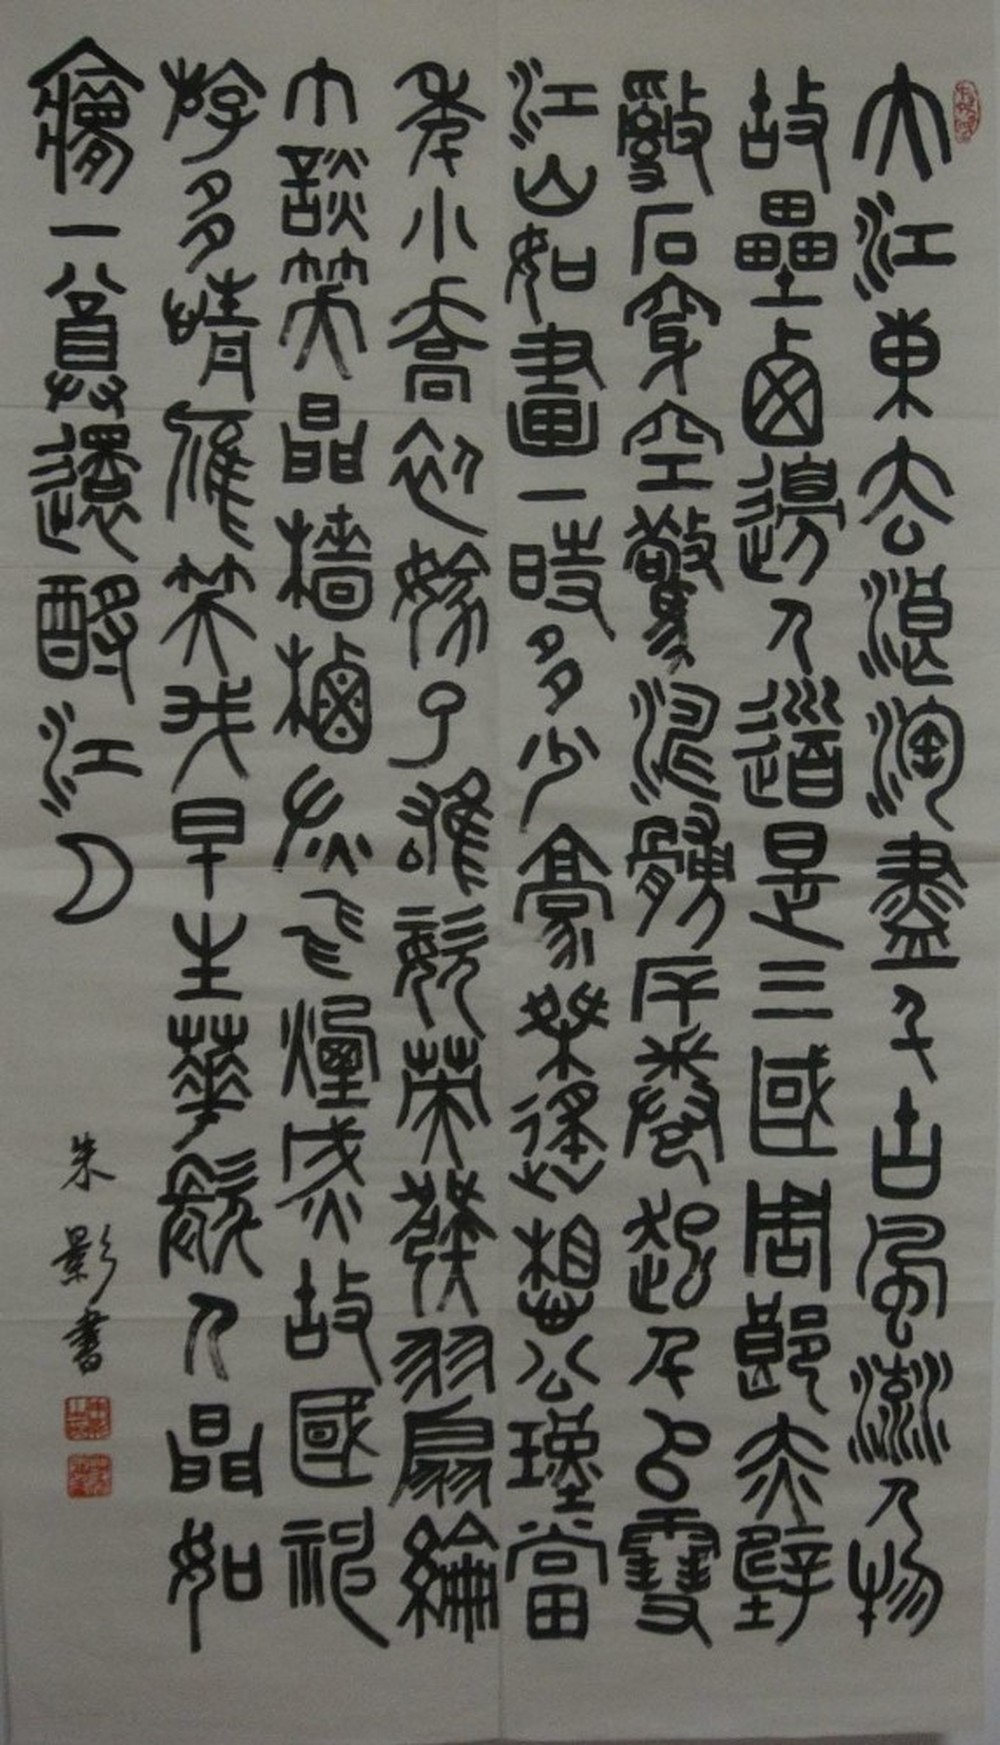 大江東去浪淘盡千古風流人物
故壘西邊人道是三國周郎赤壁
亂石穿空驚濤拍岸卷起千堆雪
江山如畫一時多少豪傑遙想公瑾當
年小喬初嫁了雄姿英發羽扇綸
巾談笑間檣櫓灰飛煙滅故國神
遊多情應笑我早生華髮人間如
夢一尊還酹江月
朱影書